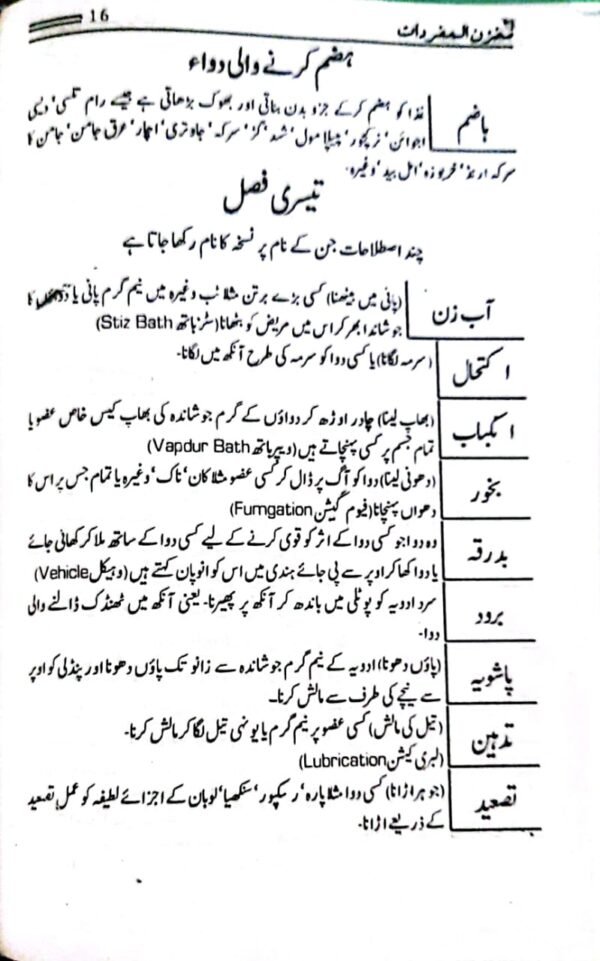 16
مخزن المفردات
ہضم کرنے والی دواء
ہاضم
غذا کو ہضم کرکے جزو بدن بناتی اور بھوک بڑھاتی ہے جیسے رام تلسی' دیسی
اجوائن' نرکچور' پیپلا مول' شہد' گڑ' سرکہ' جاوتری' اچار' عرق جامن' جامن کا
سرکہ ارنڈ' خربوزہ' امل بید' وغیرہ۔
تیسری فصل
چند اصطلاحات جن کے نام پر نسخہ کا نام رکھا جاتا ہے
آب زن
(پانی میں بیٹھنا) کسی بڑے برتن مثلا ٹب وغیرہ میں نیم گرم پانی یا دواؤں کا
جوشاندا بھر کر اس میں مریض کو بٹھانا (سٹز باتھ Stiz Bath)
اکتحال
(سرمہ لگانا) یا کسی دوا کو سرمہ کی طرح آنکھ میں لگانا۔
انکباب
(بھاپ لینا) چادر اوڑھ کر دواؤں کے گرم جوشاندہ کی بھاپ کیس خاص عضو یا
تمام جسم پر کسی پہنچاتے ہیں (ویپر باتھ Vapdur Bath)
بخور
(دھونی لینا) دوا کو آگ پر ڈال کر کسی عضو مثلا کان' ناک' وغیرہ یا تمام جس پر اس کا
دھواں پہنچانا (فیوم گیشن Fumgation)
بدرقہ
وہ دوا جو کسی دوا کے اثر کو قوی کرنے کے لیے کسی دوا کے ساتھ ملا کر کھائی جائے
یا دوا کھا کر اوپر سے پی جائے ہندی میں اس کو انوپان کہتے ہیں (وہیکل Vehicle)
برود
سرد ادویہ کو پوٹلی میں باندھ کر آنکھ پر پھیرنا۔ یعنی آنکھ میں ٹھنڈک ڈالنے والی
دوا۔
پاشویہ
(پاؤں دھونا) ادویہ کے نیم گرم جوشاندہ سے زانو تک پاؤں دھونا اور پنڈلی کو اوپر
سے نیچے کی طرف سے مالش کرنا۔
تدہین
(تیل کی مالش) کسی عضو پر نیم گرم یا یونہی تیل لگا کر مالش کرنا۔
(لبری کیشن Lubrication)
تصعید
(جوہر اڑانا) کسی دوا مثلا پارہ' رسکپور' سنکھیا' لوبان کے اجزائے لطیفہ کو عمل تصعید
کے ذریعے اڑانا۔